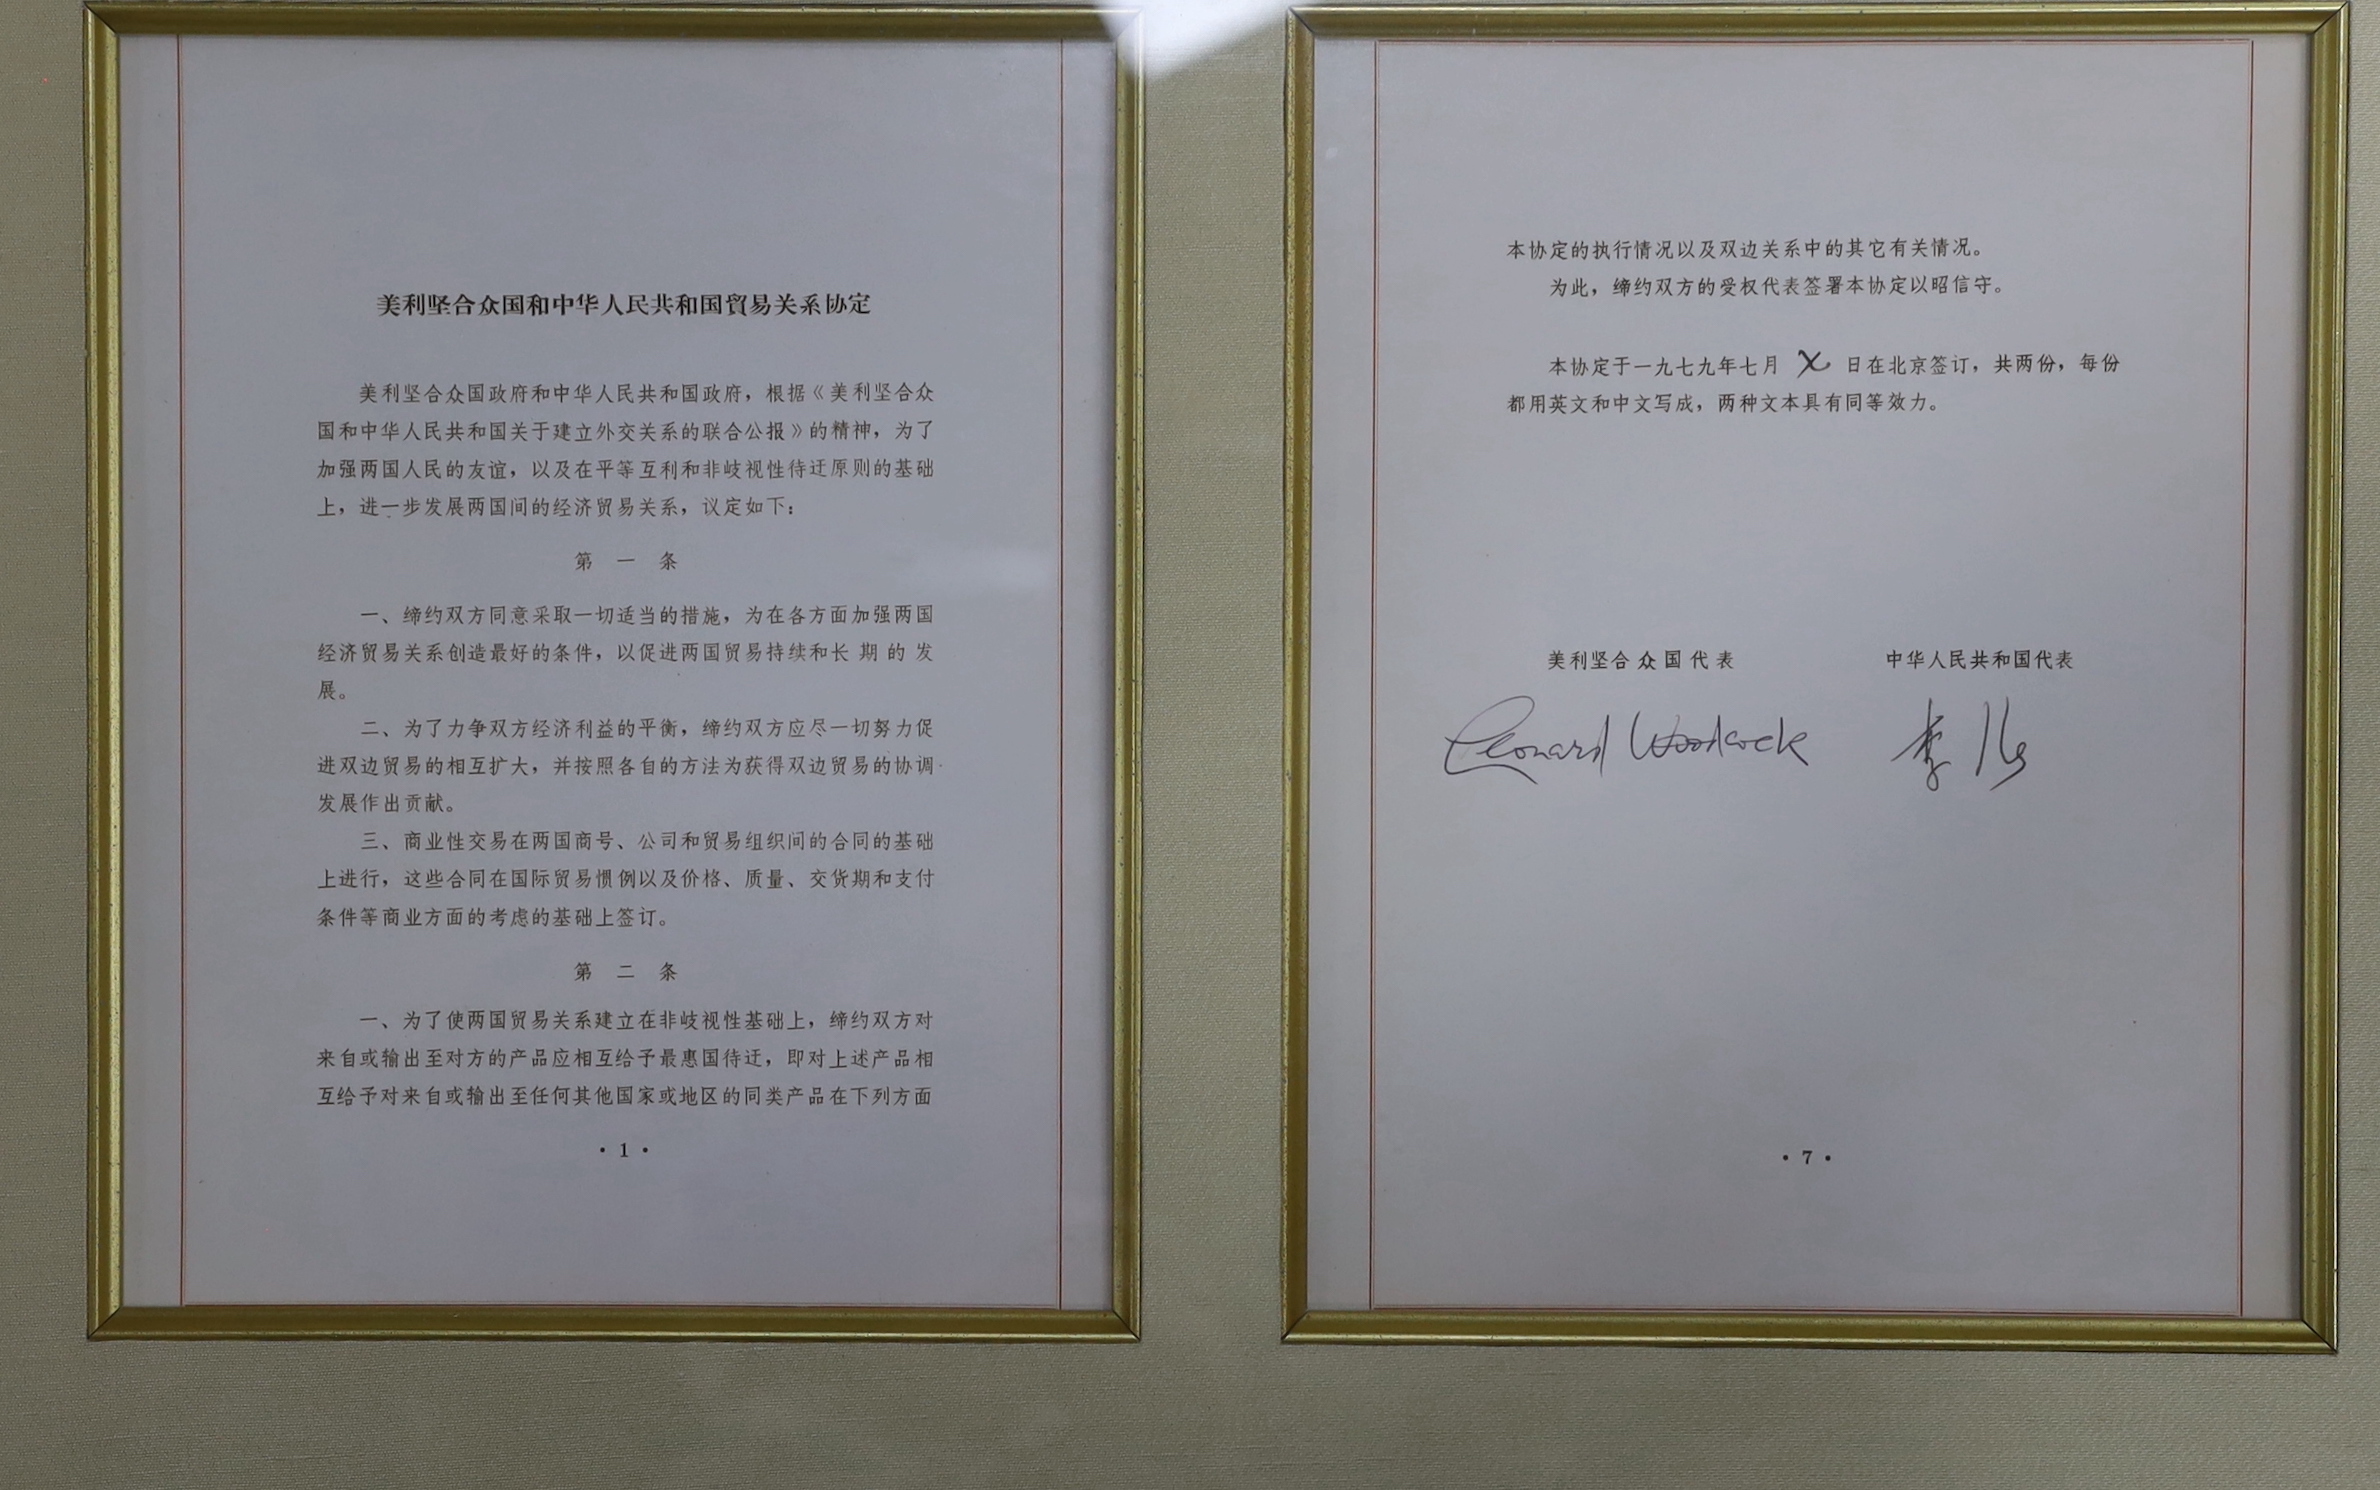 美利坚合众国和中华人民共和国貿易关系协定
美利坚合众国政府和中华人民共和国政府，根据《美利坚合众
国和中华人民共和国关于建立外交关系的联合公报》的精神，为了
加强两国人民的友谊，以及在平等互利和非歧视性待迂原则的基础
上，进一步发展两国间的经济贸易关系，议定如下：
第一条
一、缔约双方同意采取一切适当的措施，为在各方面加强两国
经济贸易关系创造最好的条件，以促进两国贸易持续和长期的发
展。
二、为了力争双方经济利益的平衡，缔约双方应尽一切努力促
进双边贸易的相互扩大，并按照各自的方法为获得双边贸易的协调
发展作出贡献。
三、商业性交易在两国商号、公司和贸易组织间的合同的基础
上进行，这些合同在国际贸易惯例以及价格、质量、交货期和支付
条件等商业方面的考虑的基础上签订。
第二条
一、为了使两国贸易关系建立在非歧视性基础上，缔约双方对
来自或输出至对方的产品应相互给予最惠国待迂，即对上述产品相
互给予对来自或输出至任何其他国家或地区的同类产品在下列方面
• 1 •
本协定的执行情况以及双边关系中的其它有关情况。
为此，缔约双方的受权代表签署本协定以昭信守。
本协定于一九七九年七月 七 日在北京签订，共两份，每份
都用英文和中文写成，两种文本具有同等效力。
美利坚合众国代表 中华人民共和国代表
Leonard Woodcock 李
• 7 •